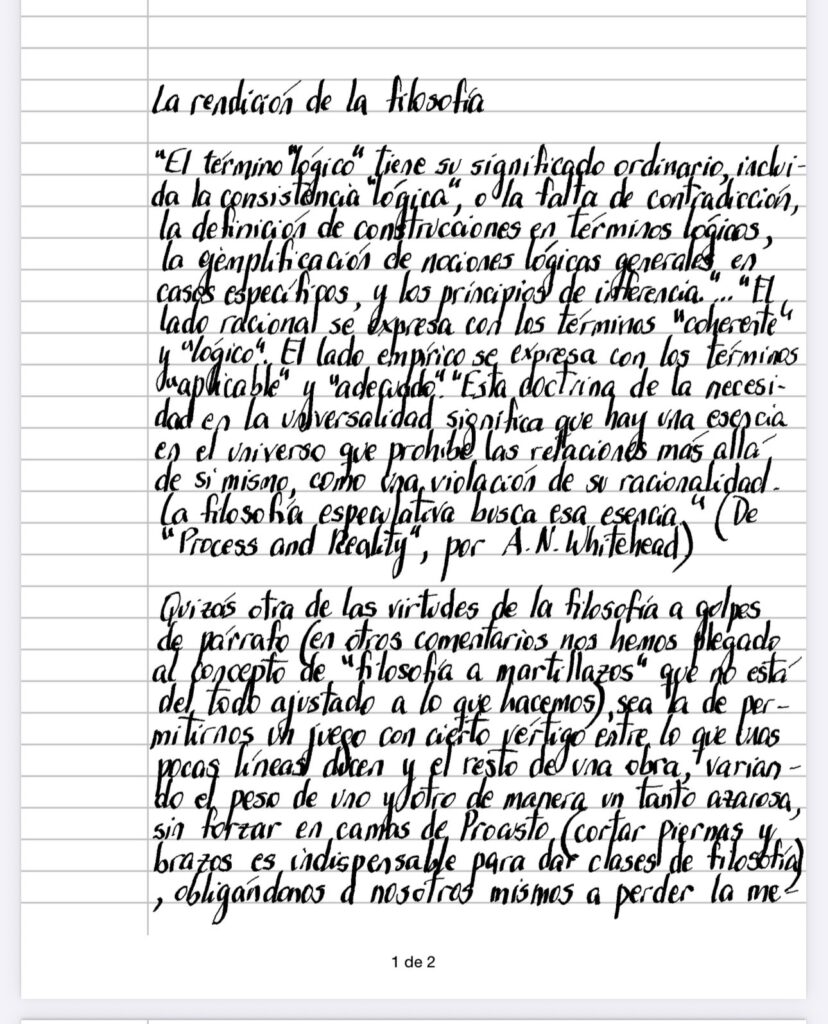 La rendición de la filosofía
"El término "lógico" tiene su significado ordinario, inclui-
da la consistencia "lógica", o la falta de contradicción,
la definición de construcciones en términos lógicos,
la ejemplificación de nociones lógicas generales en
casos específicos, y los principios de inferencia."... "El
lado racional se expresa con los términos "coherente"
y "lógico". El lado empírico se expresa con los términos
"aplicable" y "adecuado". "Esta doctrina de la necesi-
dad en la universalidad significa que hay una esencia
en el universo que prohíbe las relaciones más allá
de sí mismo, como una violación de su racionalidad.
La filosofía especulativa busca esa esencia." (De
"Process and Reality", por A.N. Whitehead)
Quizás otra de las virtudes de la filosofía a golpes
de párrafo (en otros comentarios nos hemos plegado
al concepto de "filosofía a martillazos" que no está
del todo ajustado a lo que hacemos), sea la de per-
mitirnos un juego con cierto vértigo entre lo que unas
pocas líneas dicen y el resto de una obra, varian-
do el peso de uno y otro de manera un tanto azarosa,
sin forzar en camas de Procusto (cortar piernas y
brazos es indispensable para dar clases de filosofía)
, obligándonos a nosotros mismos a perder la me-
1 de 2